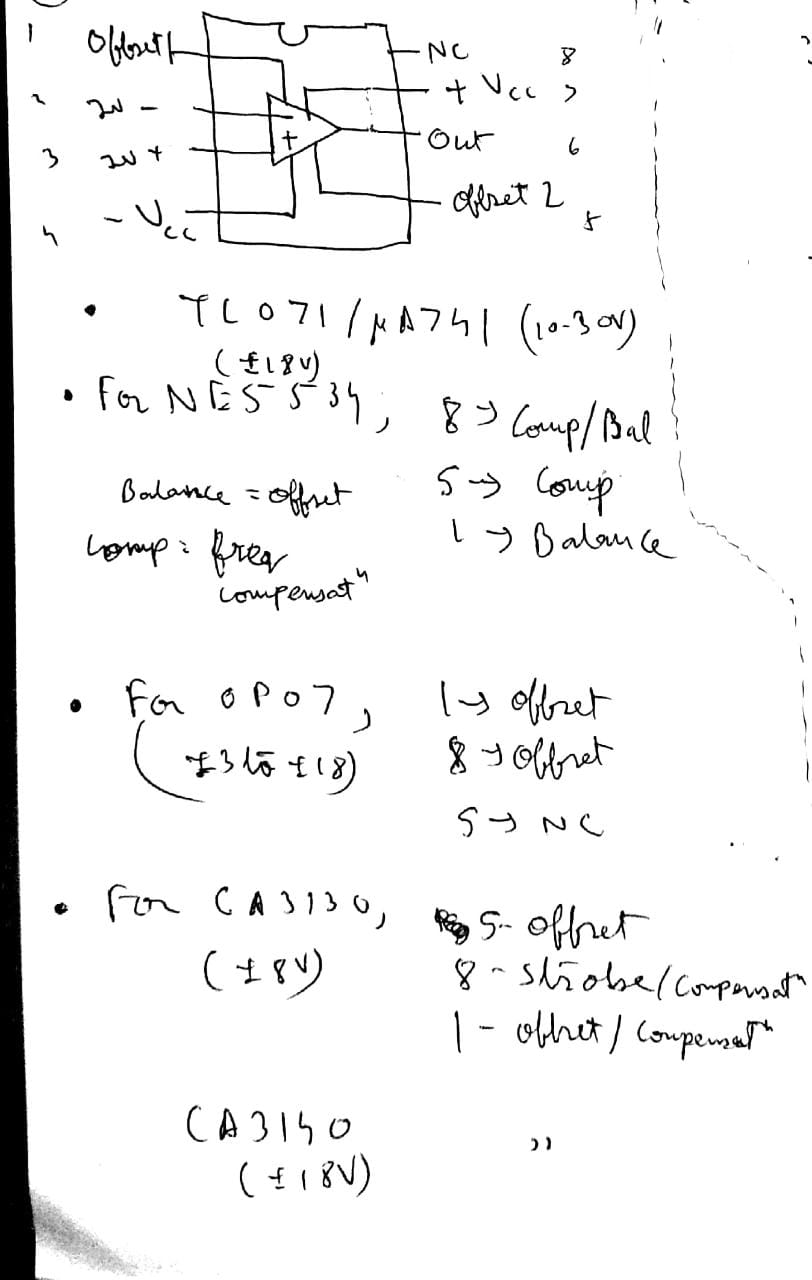 1 Offset 1 NC 8
2 IN - + Vcc 7
3 IN + + Out 6
4 - Vcc offset 2 5
• TL071/μA741 (10-30V)
(±18V)
• For NE5534, 8 → Comp/Bal
Balance = offset 5 → Comp
Comp = freq 1 → Balance
compensatⁿ
• For OP07, 1 → offset
(±3 to ±18) 8 → Offset
5 → NC
• For CA3130, 5 - offset
(±8V) 8 - strobe/Compensatⁿ
1 - offset/Compensatⁿ
CA3140 ,,
(±18V)